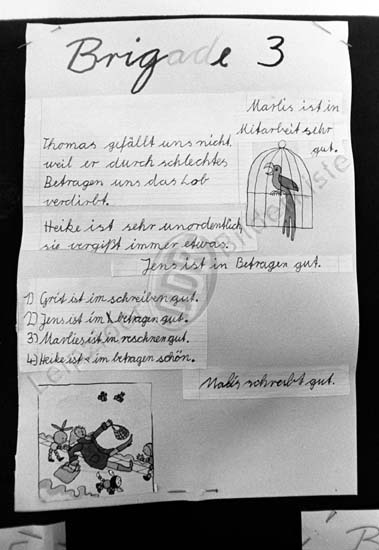 Brigade 3
Marlis ist in
Mitarbeit sehr
gut.
Thomas gefällt uns nicht,
weil er durch schlechtes
Betragen uns das Lob
verdirbt.
Heike ist sehr unordentlich,
sie vergißt immer etwas.
Jens ist in Betragen gut.
1) Grit ist im schreiben gut.
2) Jens ist im betragen gut.
3) Marlies ist in reschnen gut.
4) Heike ist im betragen schön.
Malis schreibt gut.